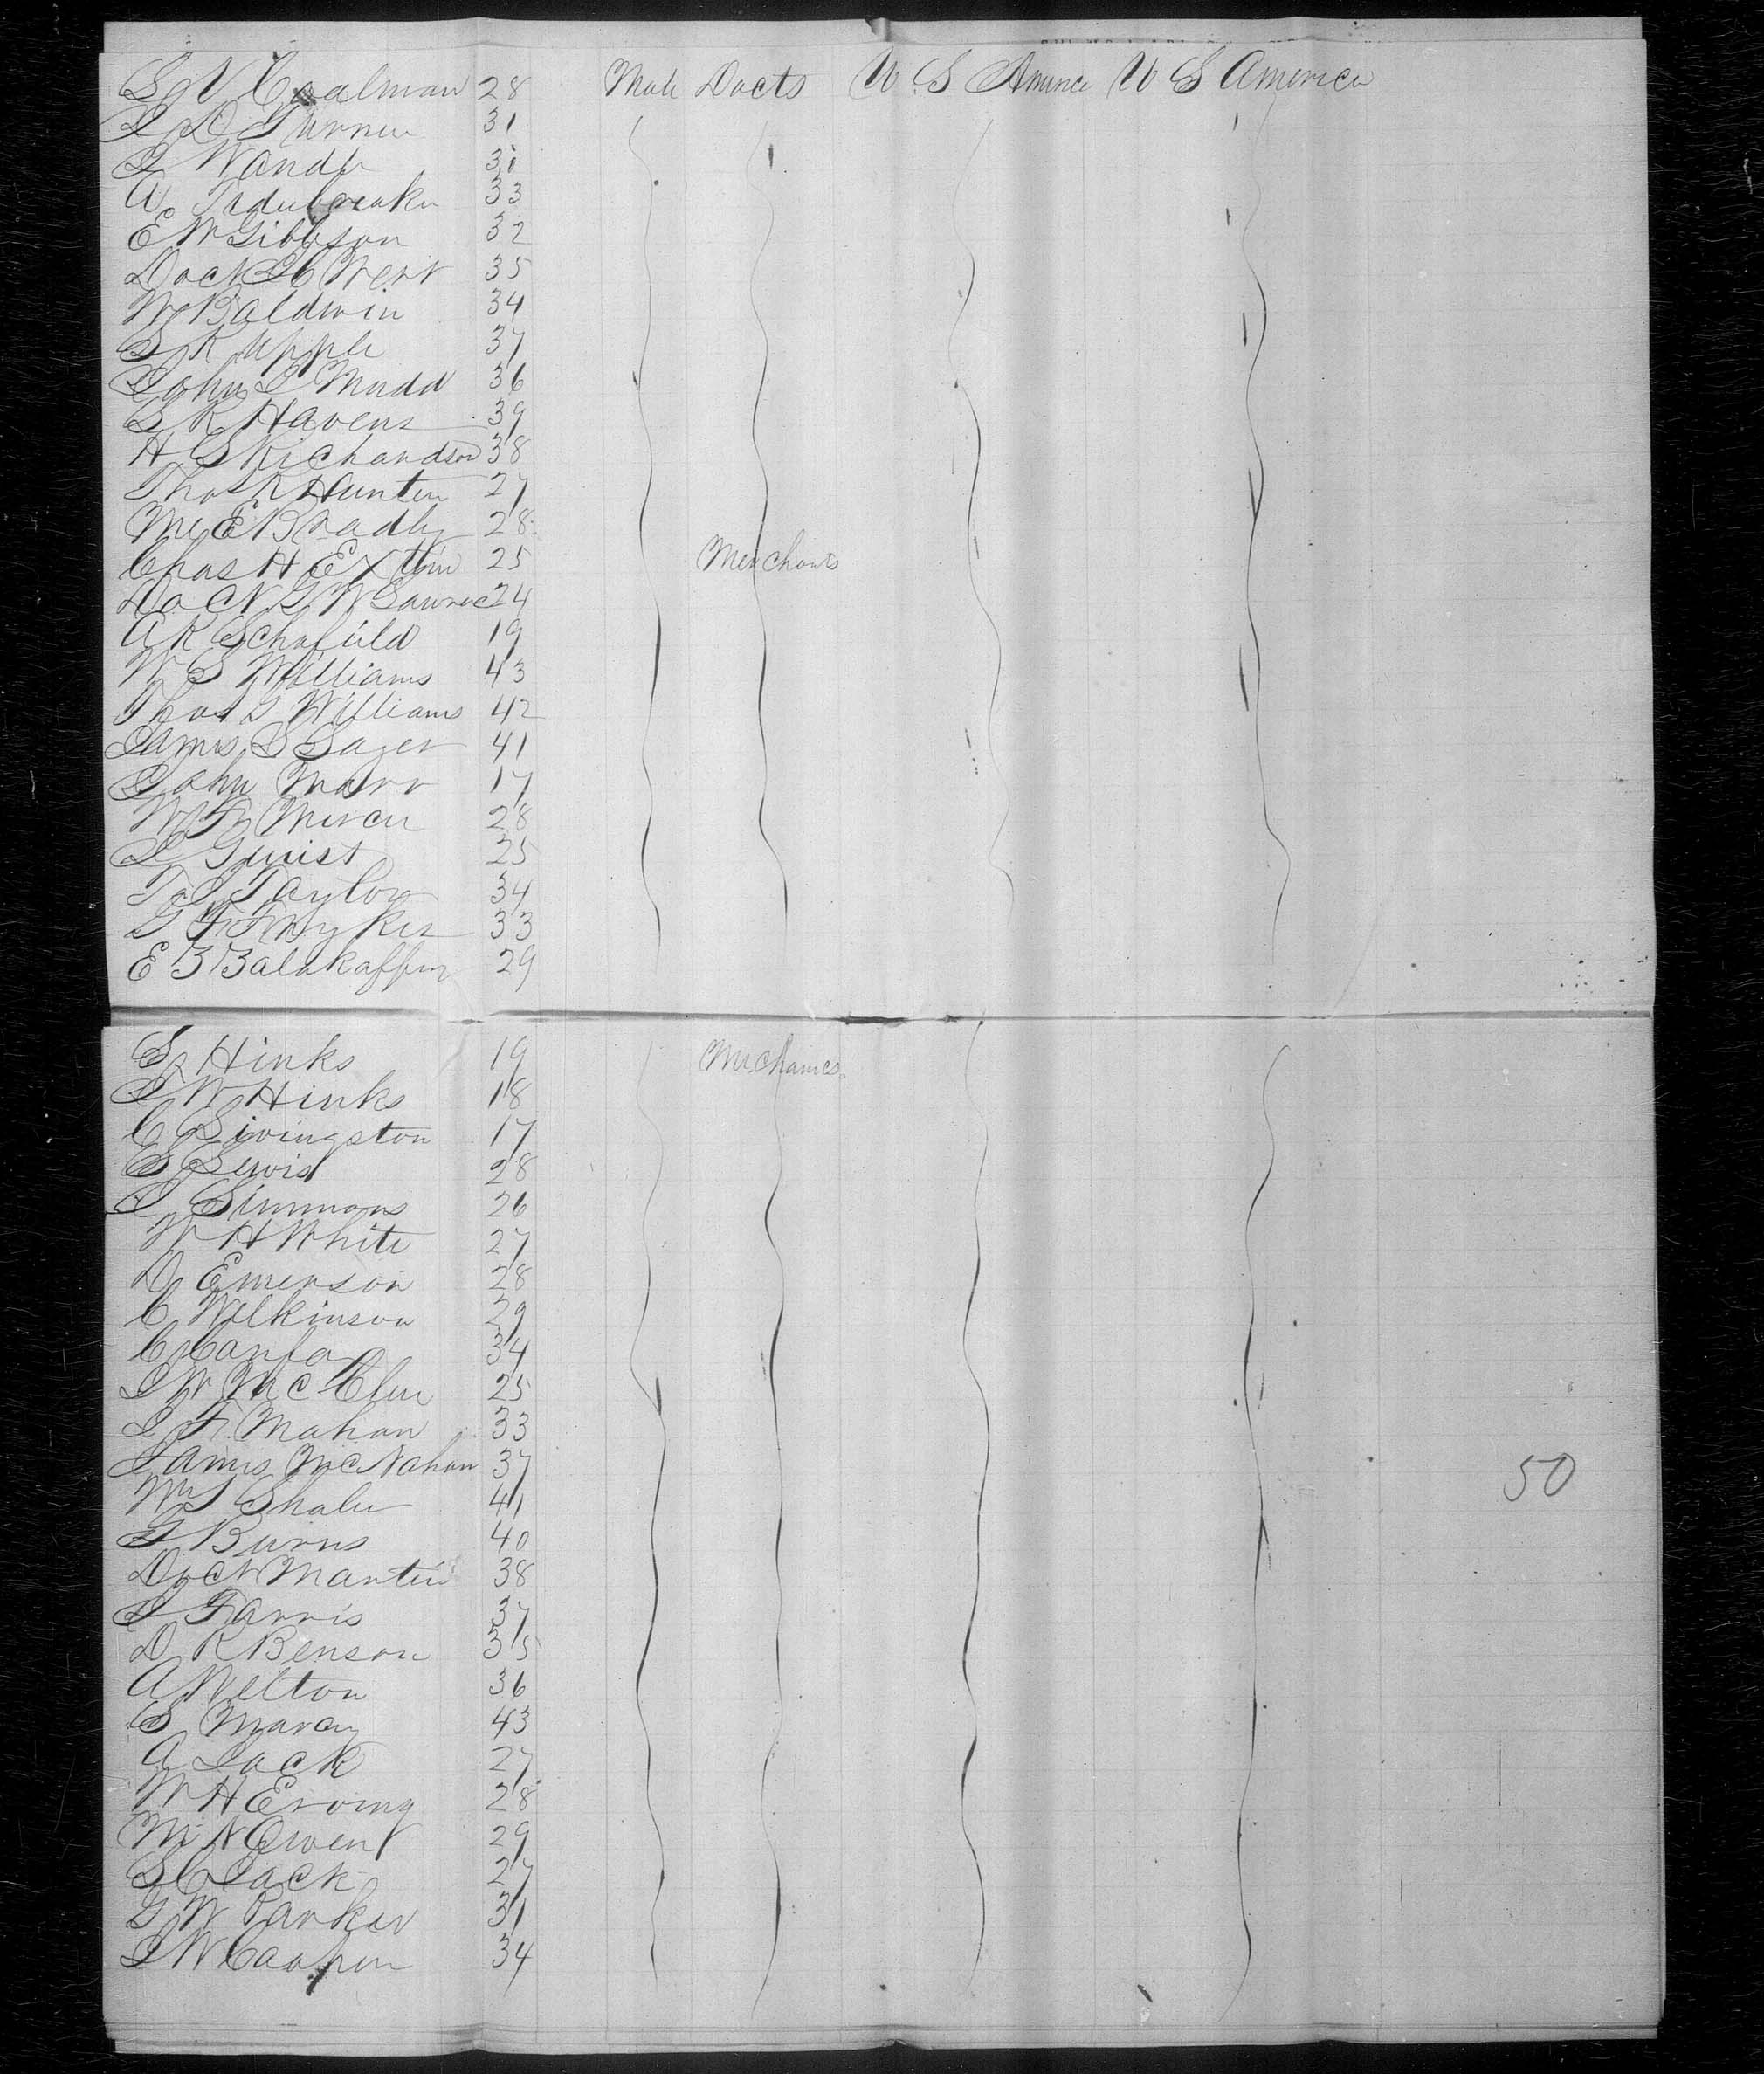 S N Coalman 28 Male Docts U S America U S America
J D Turner 31
J Wandle 31
A 33
E W Gibbson 32
Doct J C Wert 35
W Baldwin 34
S K Upple 37
John J Mudd 36
S R Havens 39
H S Richardson 38
Thos R Hunter 27
Mc E Bradly 28
Chas H Exttin 25 Merchants
Doct G W 24
A R Schofield 19
W S Williams 43
Thos G Williams 42
James S Sager 41
John Marr 17
W F Mercer 28
J Guist 25
T J Taylor 34
G F 33
E B 29
S Hinks 19 Mechanics
J W Hinks 18
C Livingston 17
S Lewis 28
J Simmons 26
W H White 27
D Emerson 28
C Wilkinson 29
C 34
J W McClur 25
J F Mahan 33
James McNahon 37 50
Wm S Shaler 41
G Burns 40
Doct Martin 38
J Farris 37
D R Benson 35
A Welton 36
S Marcy 43
A Jack 27
W H Erving 28
M N Owen 29
S C Jack 27
G W Parker 31
J W Cooper 34